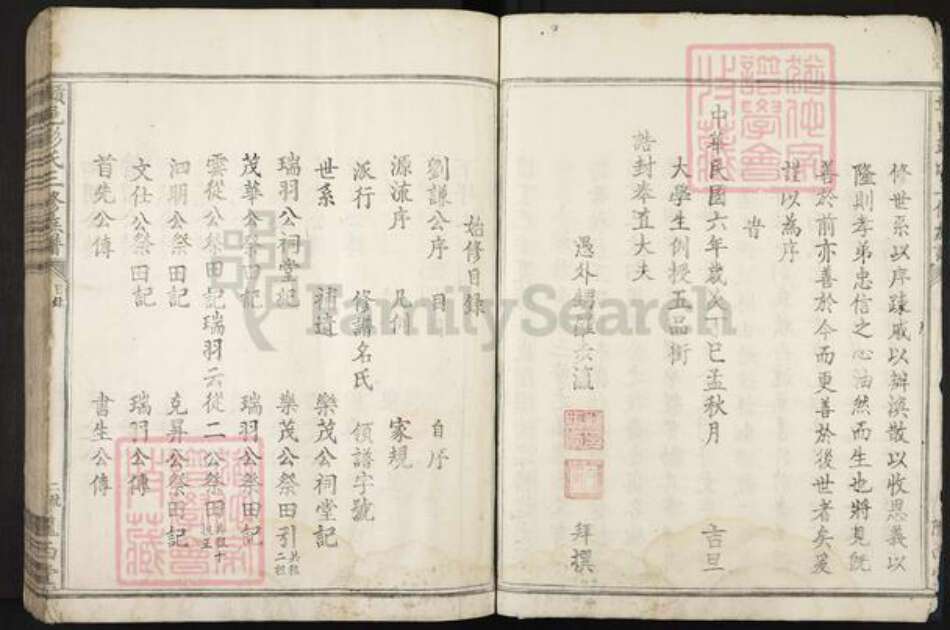 修世系以序疎戚以辨渙散以收恩義以
隆則孝弟忠信之心油然而生也將見旣
善於前亦善於今而更善於後世者矣爰
謹以為序
旹
中華民國六年歲次丁巳孟秋月 吉旦
大學生例授五品銜
誥封奉直大夫
愚外甥羅 拜撰
始修目錄
劉謙公序 目 自序
源流序 凡例 家規
派行 修譜名氏 領譜字號
世系 補遺 樂茂公祠堂記
瑞羽公祠堂記 樂茂公祭田引 共租二担
茂華公祭田記 瑞羽公祭田記
雲從公祭田記 瑞羽云從二公祭田
泗明公祭田記 克昇公祭田記
文仕公祭田記 瑞羽公傳
首先公傳 書生公傳
氏三修族譜
二號
FamilySearch